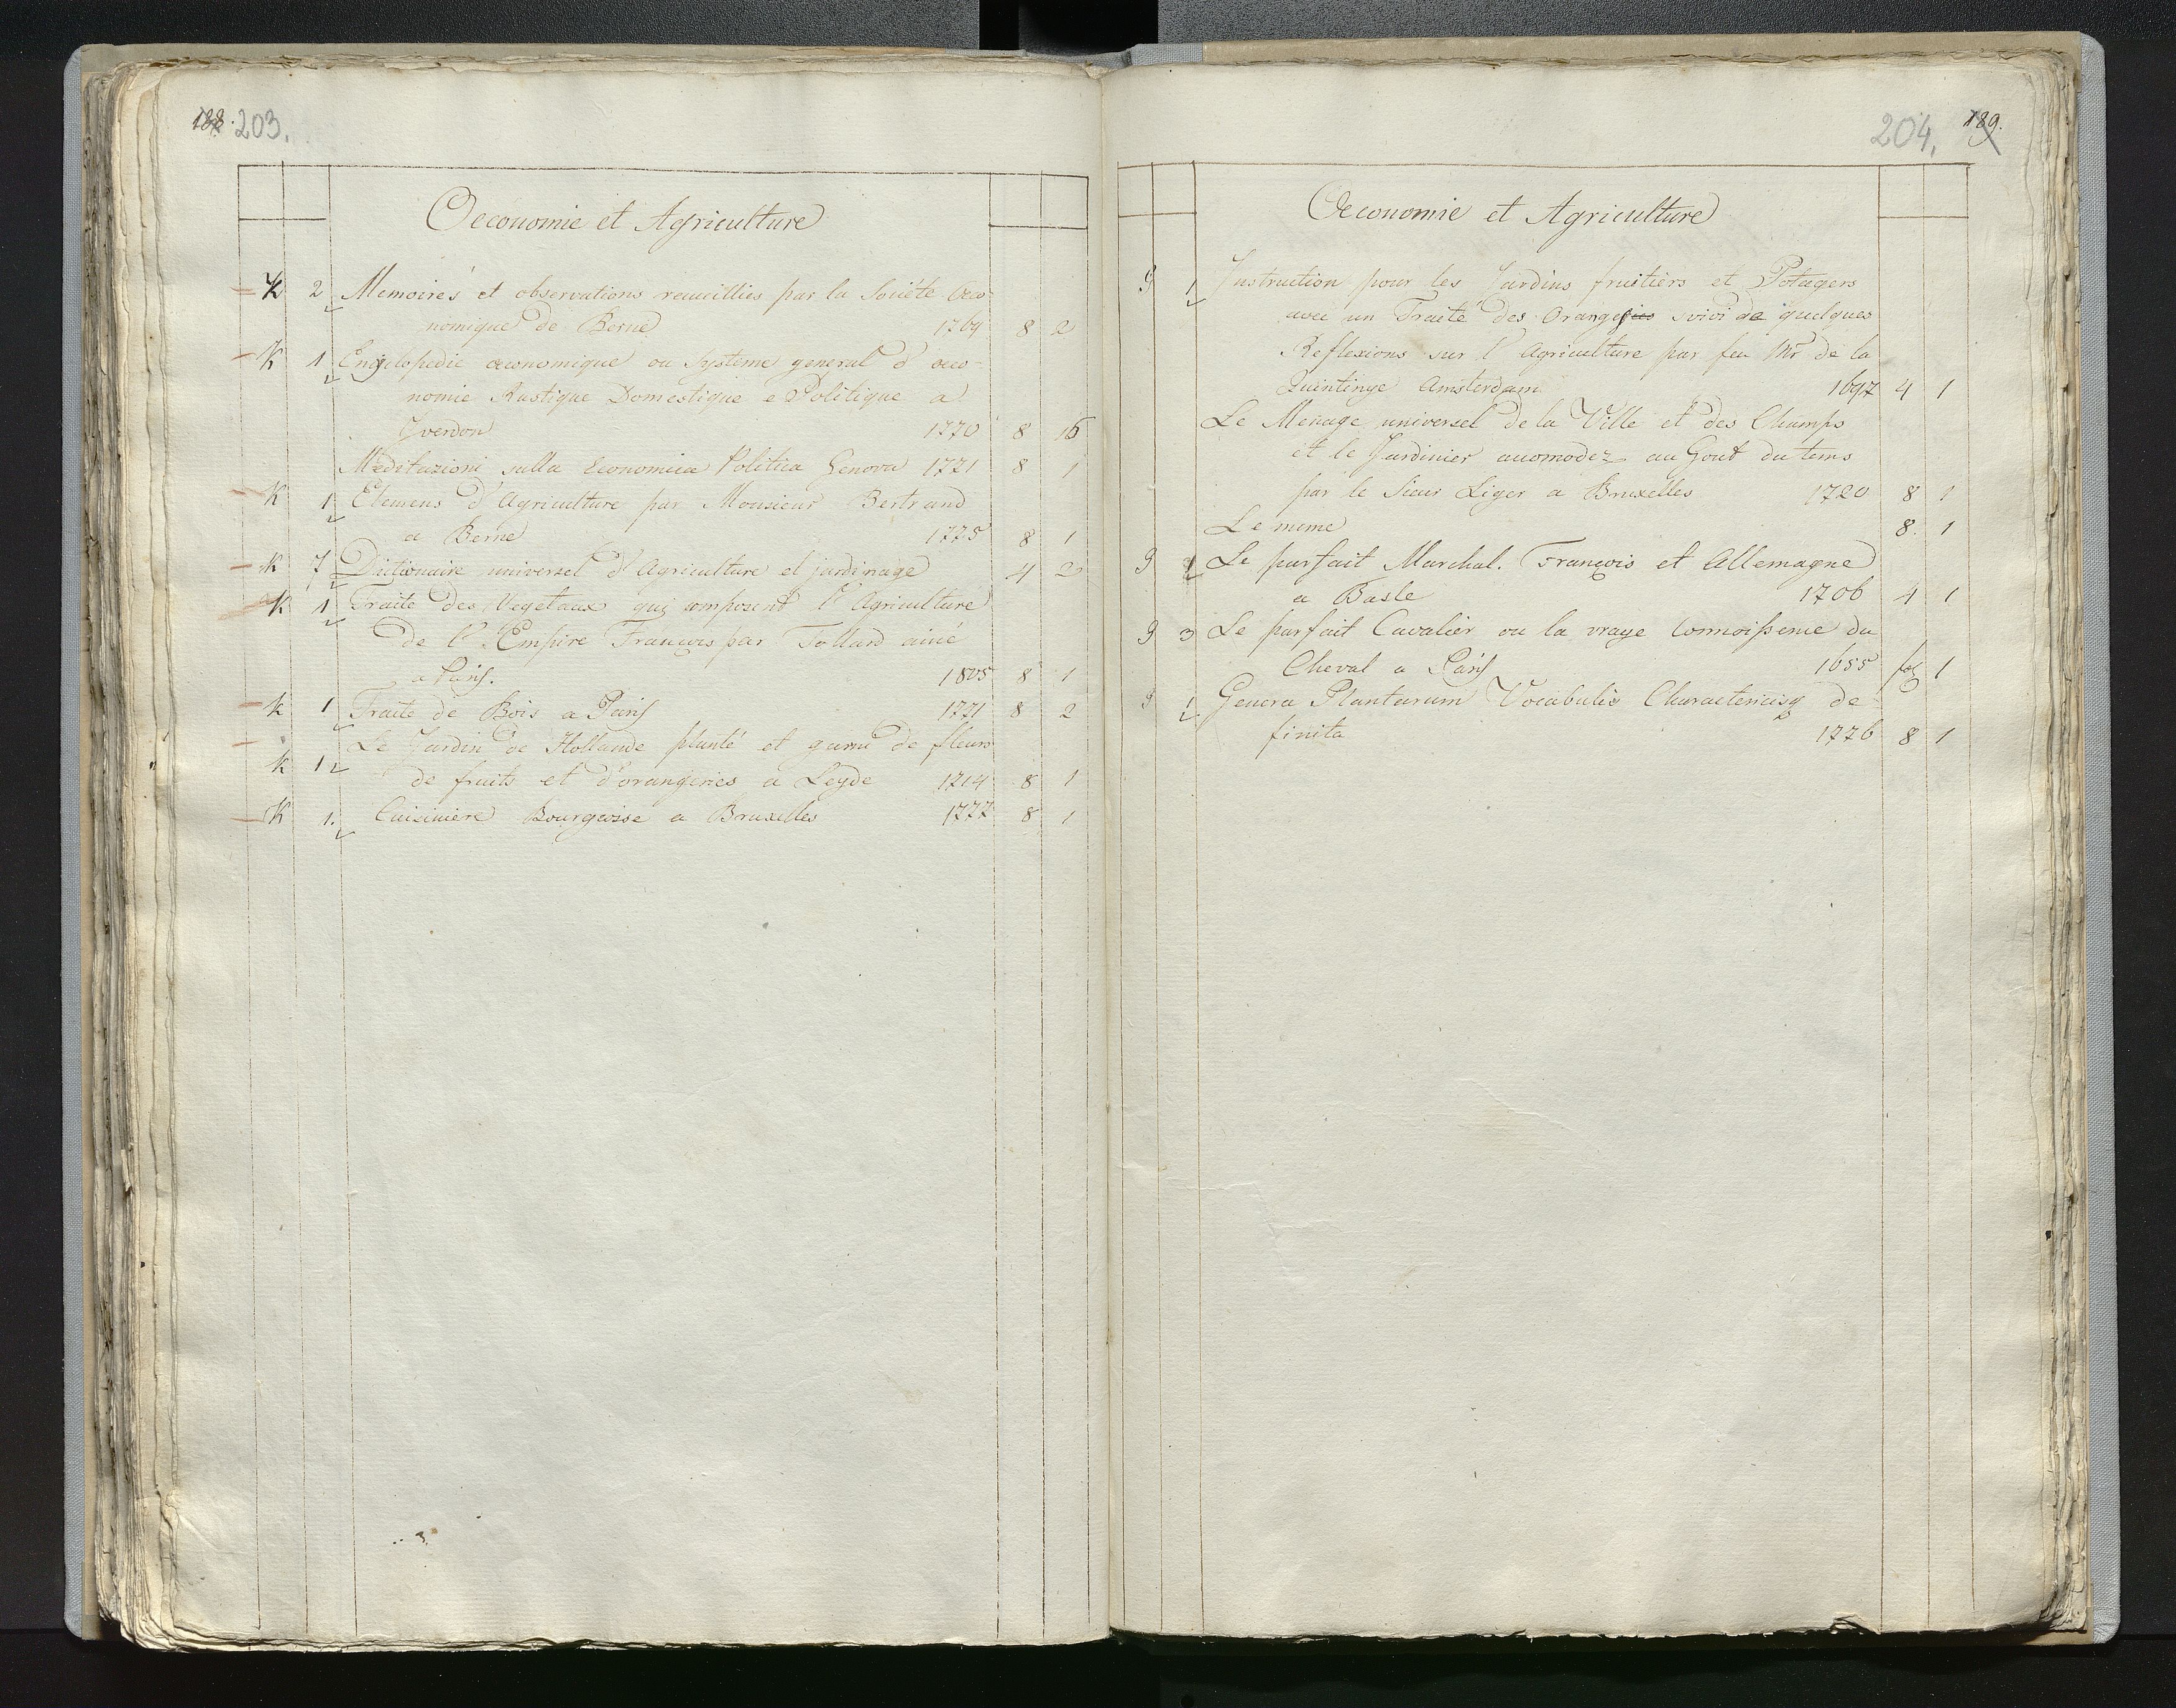 188. 203.
Oeconomie et Agriculture
K 2 Memoires et observations recueillies par la Societé Oeco-
nomique de Berne 1769 8 2
K 1 Encyclopedie oeconomique ou systeme general d'oeco-
nomie Rustique Domestique e Politique a
Yverdon 1770 8 16
Meditazioni sulla Economica Politica Genova 1771 8 1
K 1 Elemens d'Agriculture par Monsieur Bertrand
a Berne 1775 8 1
K 7 Dictionaire universel d'Agriculture et jardinage 4 2
K 1 Traite des Vegetaux qui composent l'Agriculture
de l'Empire François par Tollard ainé
a Paris. 1805 8 1
K 1 Traite de Bois a Paris 1771 8 2
Le Jardin de Hollande planté et garni de fleurs
K 1 de fruits et d'orangeries a Leyde 1714 8 1
K 1. Cuisiniere Bourgeoise a Bruxelles 1777 8 1
204. 189.
Oeconomie et Agriculture
9 1 Instruction pour les Jardins fruitiers et Potagers
avec un Traité des Oranges suivi de quelques
Reflexions sur l'Agriculture par feu Mr de la
Quintinye Amsterdam 1697 4 1
Le Menage universel de la Ville et des Champs
et le Jardinier accomodez au Gout du tems
par le Sieur Liger a Bruxelles 1720 8 1
Le meme 8. 1
9 1 Le parfait Marchal. François et Allemagne
a Basle 1706 4 1
9 3 Le parfait Cavalier ou la vraye connoissence du
Cheval a Paris 1655 fol 1
9 1 Genera Plantarum Vocabulis Characteristicis de
finita 1776 8 1